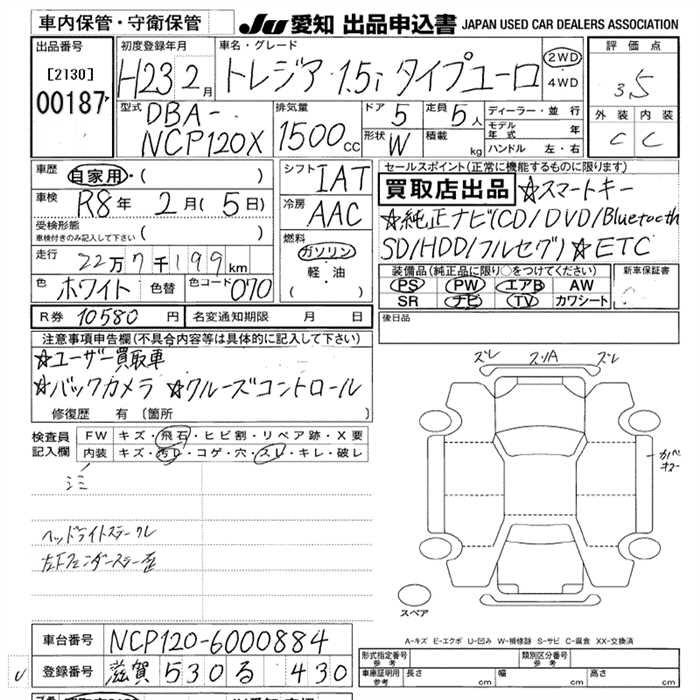 車内保管・守衛保管
JU 愛知 出品申込書 JAPAN USED CAR DEALERS ASSOCIATION
出品番号 [2130] 00187
初度登録年月 H23 2月
車名・グレード トレジア 1.5i タイプユーロ
2WD ・ 4WD
評価点 3.5
外装 C 内装 C
型式 DBA-NCP120X
排気量 1500cc
ドア 5 定員 5人
形状 W 積載 kg
ディーラー・並行
モデル年式 年
ハンドル 左・右
車歴 自家用・( )
車検 R8年 2月(5日)
受検形態
車検付きのみ記入して下さい ( )
走行 22万7千199km
色 ホワイト 色替 色コード 070
シフト IAT
冷房 AAC
燃料 ガソリン・軽・油 ( )
セールスポイント(正常に機能するものに限ります)
買取店出品 ☆スマートキー
☆純正ナビ(CD/DVD/Bluetooth
SD/HDD/フルセグ)☆ETC
装備品(純正品に限り○をつけてください) 新車保証書
PS PW エアB AW
SR ナビ TV カワシート
R券 10580円 名変通知期限 月 日
後日品
注意事項申告欄(不具合内容等は具体的に記入して下さい)
☆ユーザー買取車
☆バックカメラ ☆クルーズコントロール
修復歴 有 〔箇所 〕
検査員記入欄
FW キズ・飛石・ヒビ割・リペア跡・X要
内装 キズ・汚レ・コゲ・穴・スレ・キレ・破レ
ヘッドライトスレークル
左Fフェンダーステー歪
ズレ スリA ズレ
スペア
A-キズ E-エクボ U-凹み W-補修跡 S-サビ C-腐食 XX-交換済
車台番号 NCP120-6000884
登録番号 滋賀 530 る 430
形式指定番号 参考 類別区分番号 参考
車庫証明用 参考 長さ cm 幅 cm 高さ cm